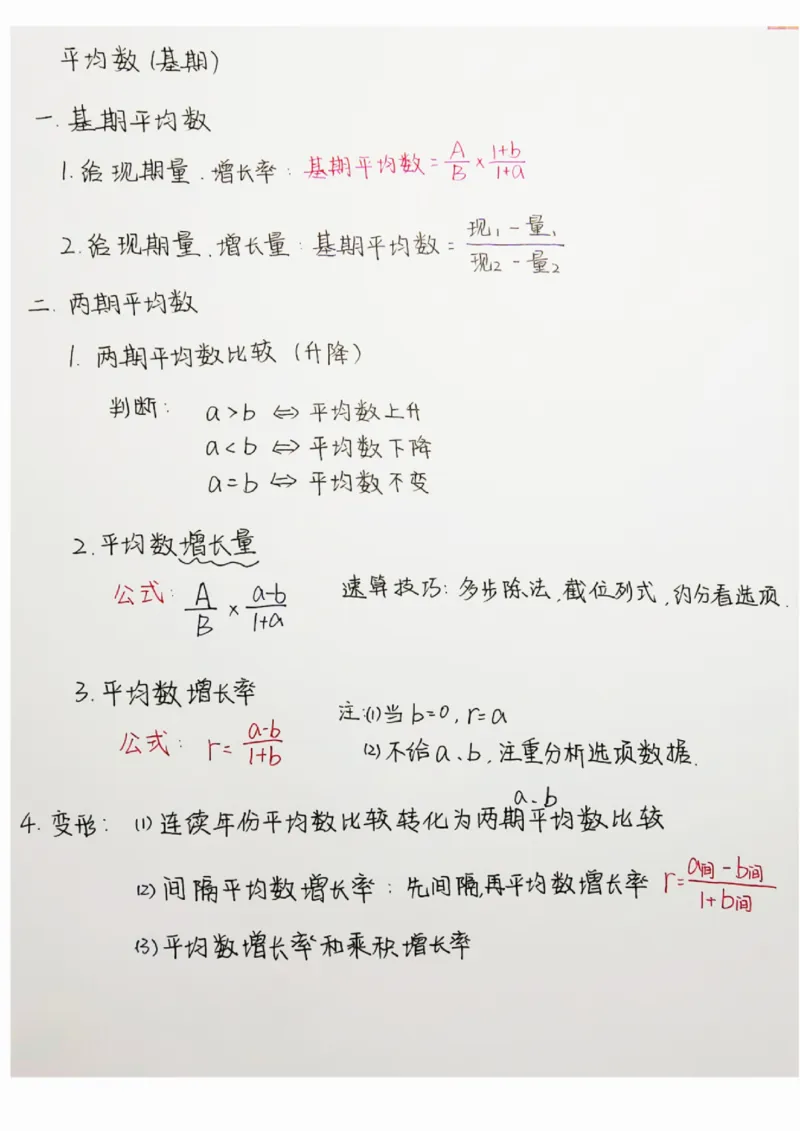 平均数(基期)
一.基期平均数
1.给现期量、增长率：基期平均数=A/B×(1+b)/(1+a)
2.给现期量、增长量：基期平均数=(现1-量1)/(现2-量2)
二.两期平均数
1.两期平均数比较(升降)
判断：a>b⇔平均数上升
a<b⇔平均数下降
a=b⇔平均数不变
2.平均数增长量
公式：A/B×(a-b)/(1+a) 速算技巧：多步除法,截位列式,约分看选项.
3.平均数增长率
公式：r=(a-b)/(1+b) 注:(1)当b=0,r=a
(2)不给a、b,注重分析选项数据.
a、b
4.变形：(1)连续年份平均数比较转化为两期平均数比较
(2)间隔平均数增长率：先间隔,再平均数增长率 r=(a间-b间)/(1+b间)
(3)平均数增长率和乘积增长率